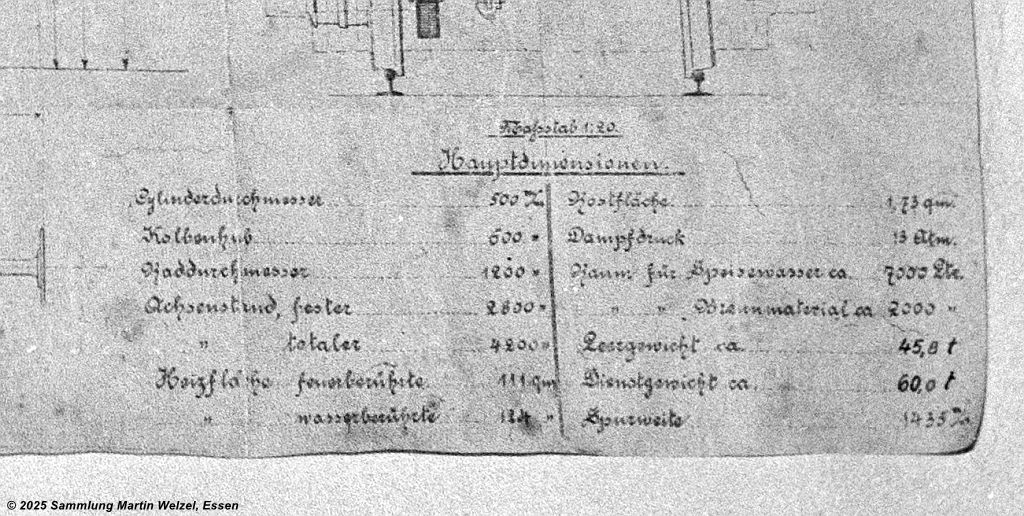 Maßstab 1:20.
Hauptdimensionen.
Cylinderdurchmesser 500 m/m
Kolbenhub 600 "
Raddurchmesser 1200 "
Achsenstand, fester 2800 "
" totaler 4200 "
Heizfläche feuerberührte 111 qm
" wasserberührte 124 "
Rostfläche 1,73 qm.
Dampfdruck 13 Atm.
Raum für Speisewasser ca 7000 Ltr.
" " Brennmaterial ca 2000 "
Leergewicht ca. 45,8 t
Dienstgewicht ca. 60,0 t
Spurweite 1435 m/m
© 2025 Sammlung Martin Welzel, Essen